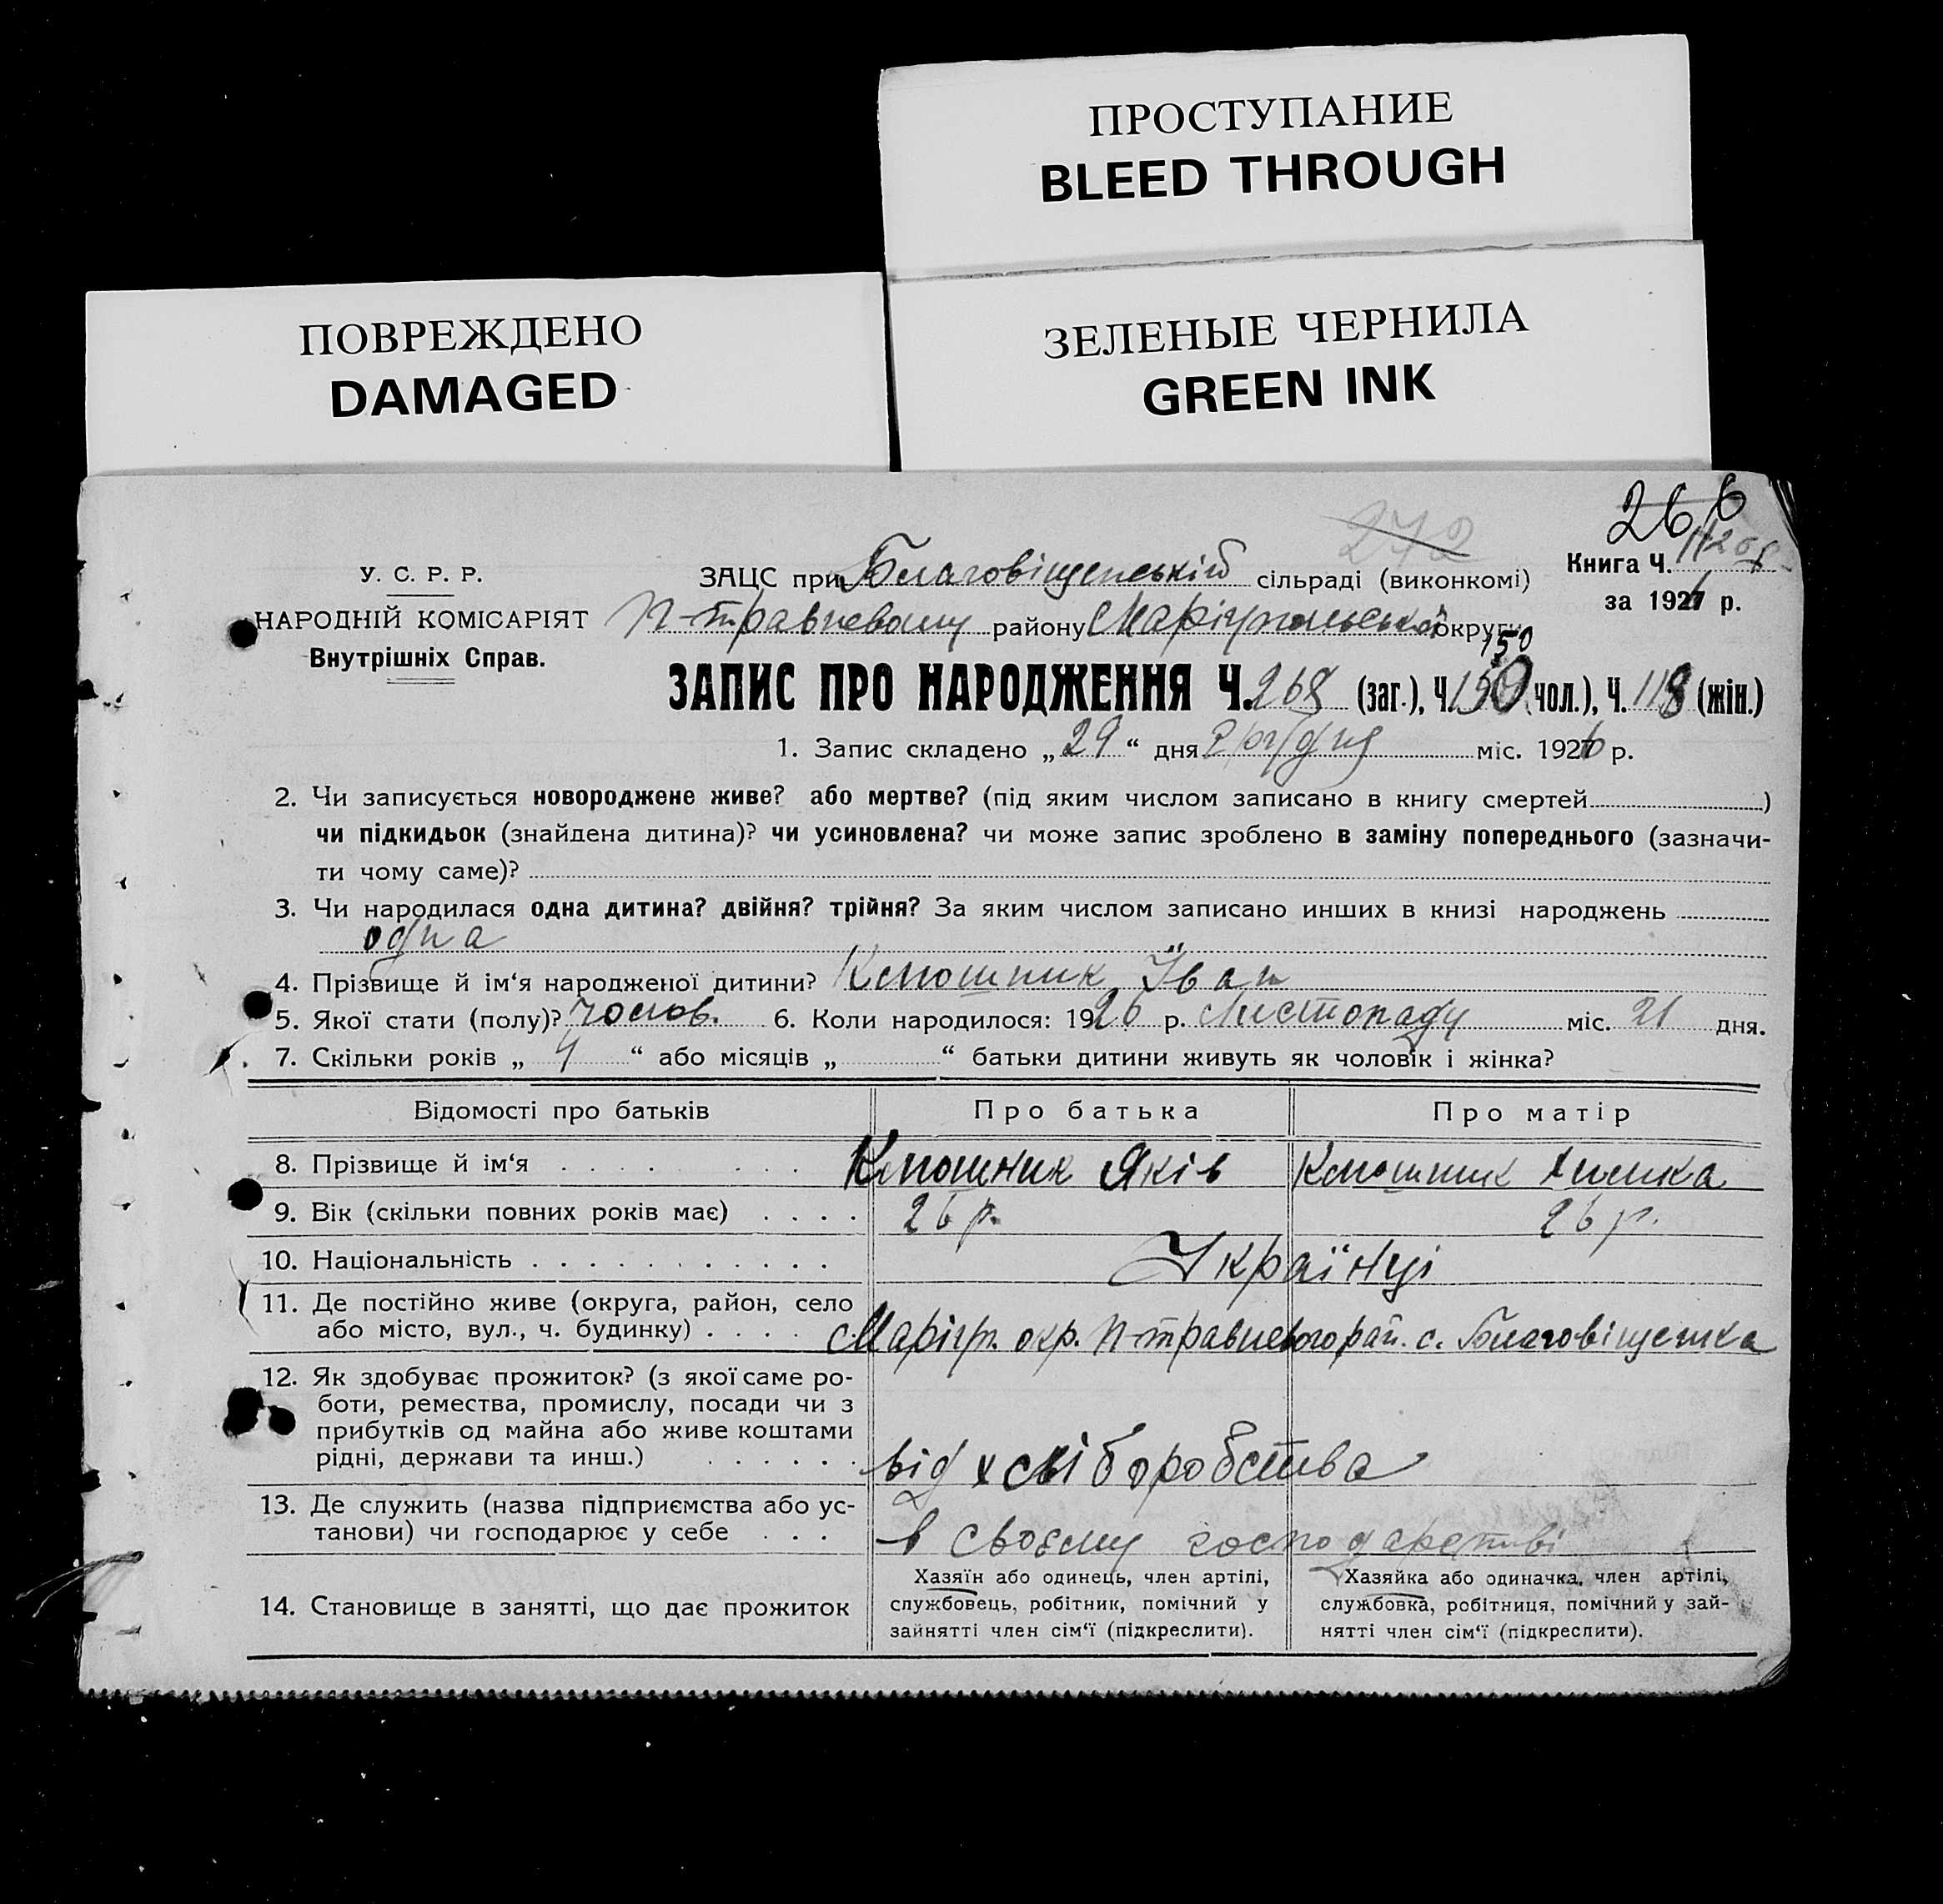 ПРОСТУПАНИЕ
BLEED THROUGH
ПОВРЕЖДЕНО
DAMAGED
ЗЕЛЕНЫЕ ЧЕРНИЛА
GREEN INK
266
272
У. С. Р. Р.
НАРОДНІЙ КОМІСАРІЯТ
Внутрішніх Справ.
ЗАЦС при Благовіщенській сільраді (виконкомі)
Книга Ч.
за 1926 р.
П-травневому району Маріупольської округи
150
ЗАПИС ПРО НАРОДЖЕННЯ Ч. 268 (заг.), Ч. 150 (чол.), Ч. 118 (жін.)
1. Запис складено „ 29 “ дня Грудня міс. 1926 р.
2. Чи записується новороджене живе? або мертве? (під яким числом записано в книгу смертей )
чи підкидьок (знайдена дитина)? чи усиновлена? чи може запис зроблено в заміну попереднього (зазначи-
ти чому саме)?
3. Чи народилася одна дитина? двійня? трійня? За яким числом записано инших в книзі народжень
одна
4. Прізвище й ім‘я народженої дитини? Клюшник Іван
5. Якої стати (полу)? чолов. 6. Коли народилося: 1926 р. Листопаду міс. 21 дня.
7. Скільки років „ 4 “ або місяців „ “ батьки дитини живуть як чоловік і жінка?
Відомості про батьків Про батька Про матір
8. Прізвище й ім‘я . . . . Клюшник Яків Клюшник Химка
9. Вік (скільки повних років має) . . . . 26 р. 26 р.
10. Національність . . . . . . . . . . . Українці
11. Де постійно живе (округа, район, село
або місто, вул., ч. будинку) . . . . Маріуп. окр. П-травневого рай. с. Благовіщенка
12. Як здобуває прожиток? (з якої саме ро-
боти, ремества, промислу, посади чи з
прибутків од майна або живе коштами
рідні, держави та инш.) . . . . . . від хліборобства
13. Де служить (назва підприємства або ус-
танови) чи господарює у себе . . . в своєму господарстві
14. Становище в занятті, що дає прожиток
Хазяїн або одинець, член артілі,
службовець, робітник, помічний у
зайнятті член сім‘ї (підкреслити).
Хазяйка або одиначка, член артілі,
службовка, робітниця, помічний у зай-
нятті член сім‘ї (підкреслити).